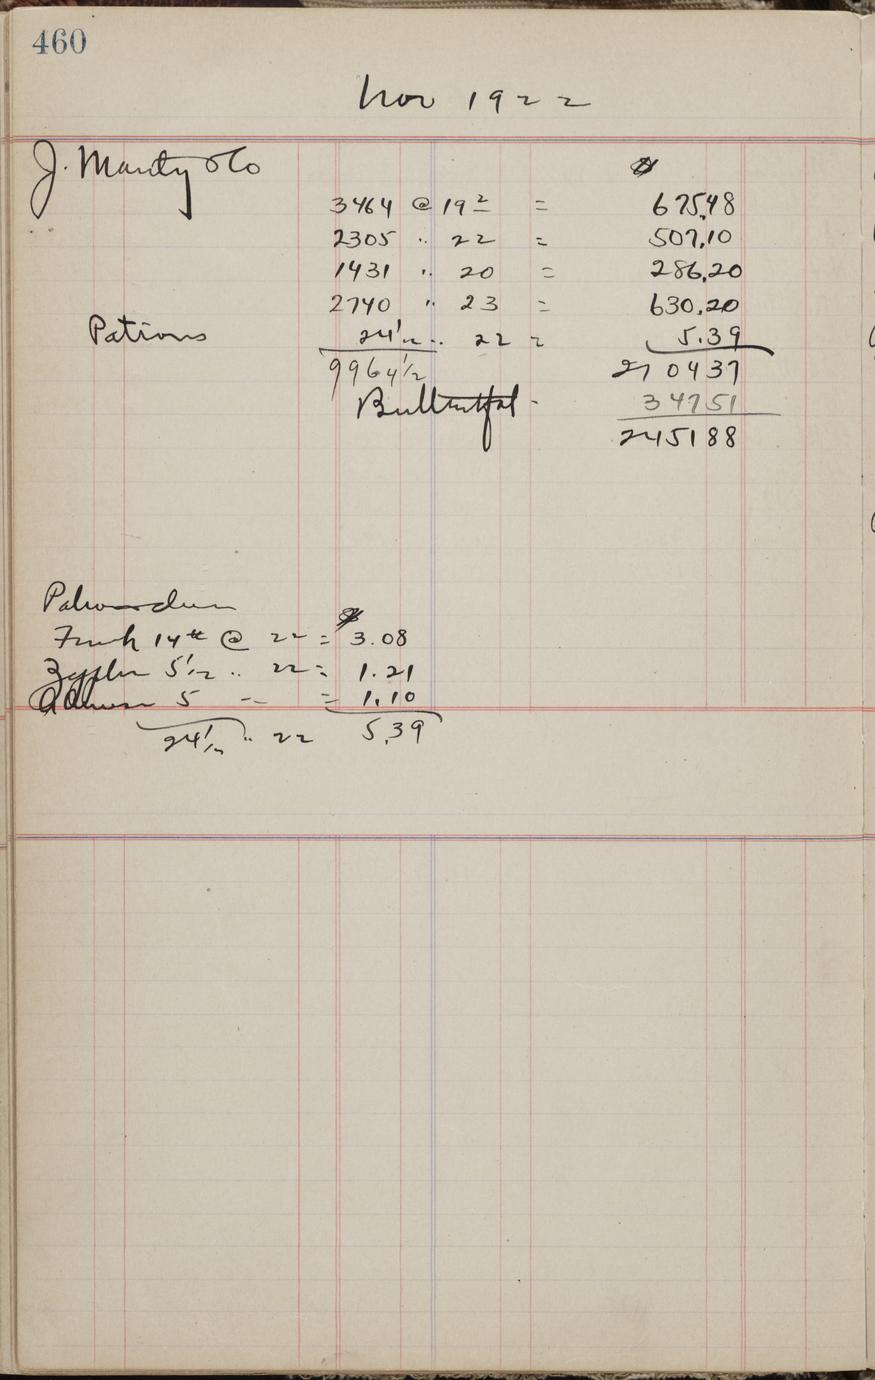 460
Nov 1922
J. Marty & Co $
3464 @ 19 2 = 675,48
2305 " 22 = 507,10
1431 " 20 = 286,20
2740 " 23 = 630,20
Patrons 24 1/2 " 22 = 5.39
9964 1/2 270437
Butterfat - 34751
245188
$
14 # @ 22 = 3.08
5 1/2 " 22 = 1.21
5 -- = 1.10
24 1/2 " 22 5.39